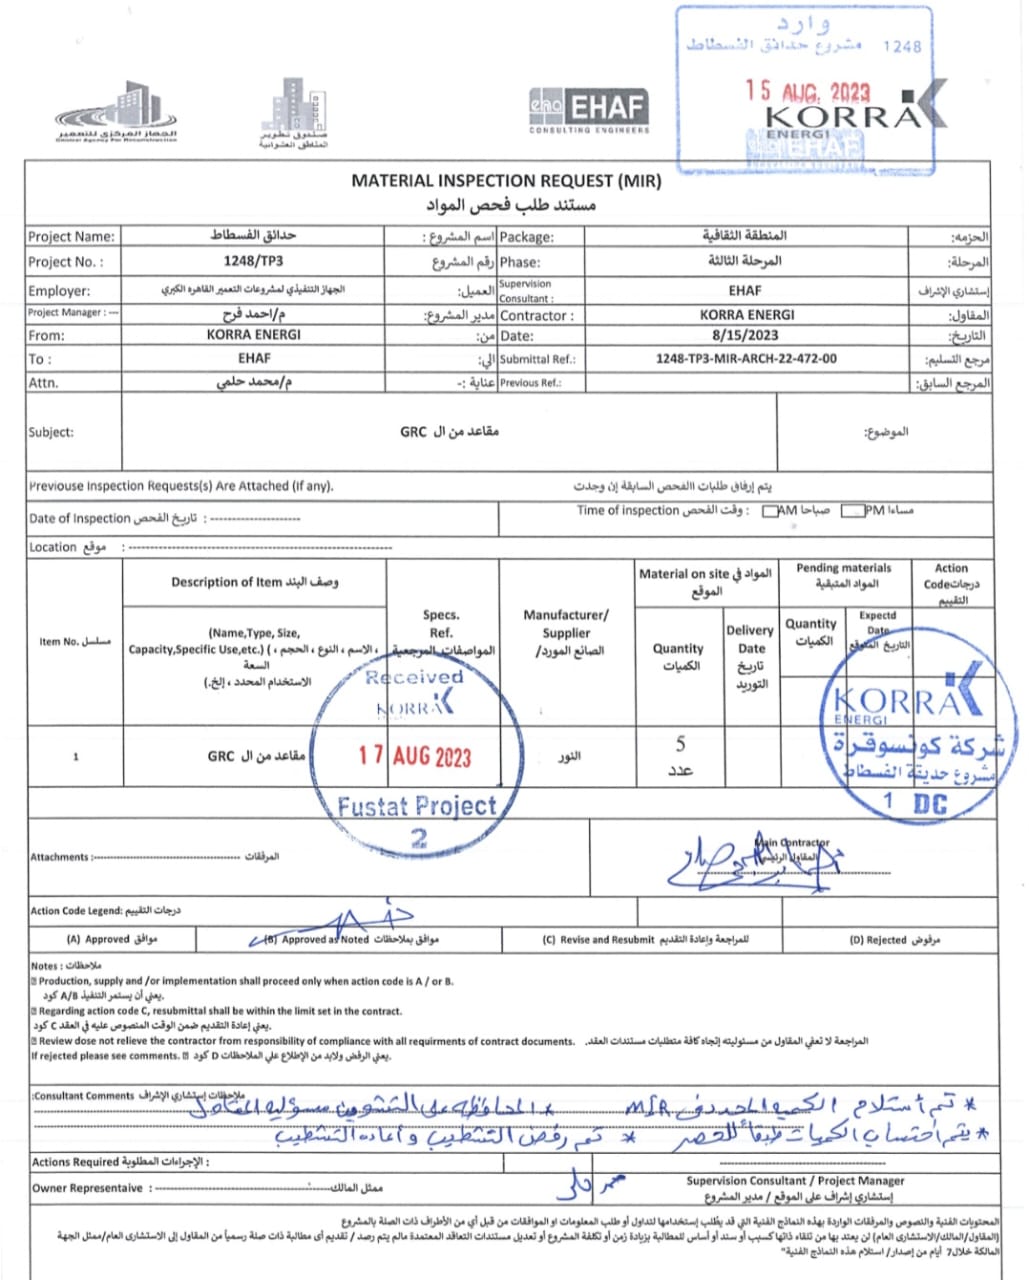 وارد
مشروع حدائق الفسطاط 1248
15 AUG. 2023
KORRA
ENERGI
EHAF
الجهاز المركزي للتعمير
Central Agency For Reconstruction
صندوق تطوير
المناطق العشوائية
eha EHAF
CONSULTING ENGINEERS
MATERIAL INSPECTION REQUEST (MIR)
مستند طلب فحص المواد
Project Name: حدائق الفسطاط اسم المشروع : Package: المنطقة الثقافية الحزمه:
Project No. : 1248/TP3 رقم المشروع Phase: المرحلة الثالثة المرحلة:
Employer: الجهاز التنفيذي لمشروعات التعمير القاهره الكبري العميل: Supervision Consultant : EHAF إستشاري الإشراف
Project Manager : --- م/احمد فرح مدير المشروع: Contractor : KORRA ENERGI المقاول:
From: KORRA ENERGI من: Date: 8/15/2023 التاريخ:
To : EHAF إلي: Submittal Ref.: 1248-TP3-MIR-ARCH-22-472-00 مرجع التسليم:
Attn. م/محمد حلمي عناية :- Previous Ref.: المرجع السابق:
Subject: مقاعد من ال GRC الموضوع:
Previouse Inspection Requests(s) Are Attached (If any). يتم إرفاق طلبات االفحص السابقة إن وجدت
Date of Inspection تاريخ الفحص : -------------------- Time of inspection وقت الفحص : AM صباحا PM مساءا
Location موقع : ----------------------------------------------------------
Item No. مسلسل
Description of Item وصف البند
(Name,Type, Size,
Capacity,Specific Use,etc.) ( الاسم ، النوع ، الحجم ،
السعة
الاستخدام المحدد ، إلخ.)
Specs.
Ref.
المواصفات المرجعية
Manufacturer/
Supplier
الصانع المورد/
Material on site المواد في
الموقع
Quantity
الكميات
Delivery
Date
تاريخ
التوريد
Pending materials
المواد المتبقية
Quantity
الكميات
Expectd
Date
التاريخ المتوقع
Action
Code درجات
التقييم
1 مقاعد من ال GRC النور 5
عدد
Received
KORRA
17 AUG 2023
Fustat Project
2
KORRA
ENERGI
شركة كونسوقرة
مشروع حديقة الفسطاط
1 DC
Attachments :-------------------------------- المرفقات
Main Contractor
المقاول الرئيسي
Action Code Legend: درجات التقييم:
(A) Approved موافق (B) Approved as Noted موافق بملاحظات (C) Revise and Resubmit للمراجعة وإعادة التقديم (D) Rejected مرفوض
Notes : ملاحظات:
Production, supply and /or implementation shall proceed only when action code is A / or B.
يعني أن يستمر التنفيذ A/B كود.
Regarding action code C, resubmittal shall be within the limit set in the contract.
يعني إعادة التقديم ضمن الوقت المنصوص عليه في العقد C كود.
Review dose not relieve the contractor from responsibility of compliance with all requirments of contract documents. المراجعة لا تعفي المقاول من مسئوليته إتجاه كافة متطلبات مستندات العقد.
If rejected please see comments. يعني الرفض ولابد من الإطلاع علي الملاحظات D كود
Consultant Comments ملاحظات إستشاري الإشراف:
* تم أستلام الكميه المحدد فى MIR * المحافظه على التشوين مسؤليه المقاول
* يتم احتساب الكميات طبقاً للحصر * تم رفض التشطيب وأعاده التشطيب
Actions Required الإجراءات المطلوبة :
Owner Representaive : ---------------- ممثل المالك
Supervision Consultant / Project Manager
إستشاري إشراف على الموقع / مدير المشروع
المحتويات الفنية والنصوص والمرفقات الواردة بهذه النماذج الفنية التي قد يطلب إستخدامها لتداول أو طلب المعلومات او الموافقات من قبل أي من الأطراف ذات الصلة بالمشروع
(المقاول/المالك/الاستشارى العام) لن يعتد بها من تلقاء ذاتها كسبب أو سند أو أساس للمطالبة بزيادة زمن أو تكلفة المشروع أو تعديل مستندات التعاقد المعتمدة مالم يتم رصد / تقديم أى مطالبة ذات صلة رسمياً من المقاول إلى الاستشارى العام/ممثل الجهة
المالكة خلال 7 أيام من إصدار/ استلام هذه النماذج الفنية"